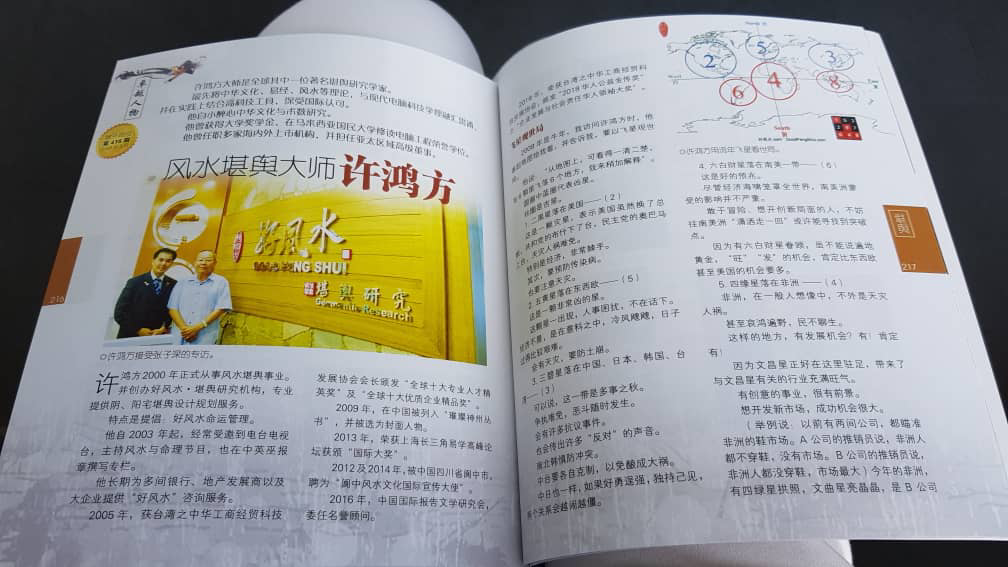 卓越人物
第416期
许鸿方大师是全球其中一位著名堪舆研究学家。
最先将中华文化、易经、风水等理论，与现代电脑科技学理融汇贯通
并在实践上结合高科技工具，深受国际认可。
他自小醉心中华文化与术数研究。
他曾获得大学奖学金，在马来西亚国民大学修读电脑工程荣誉学位。
他曾任职多家海内外上市机构，并担任亚太区域高级董事。
风水堪舆大师 许鸿方
好风水
NG SHUI
堪舆研究
Geomantic Research
许鸿方接受张子深的专访。
许鸿方2000年正式从事风水堪舆事业。
并创办好风水·堪舆研究机构，专业
提供阴、阳宅堪舆设计规划服务。
特点是提倡：好风水命运管理。
他自2003年起，经常受邀到电台电视
台，主持风水与命理节目，也在中英巫报
章撰写专栏。
他长期为多间银行、地产发展商以及
大企业提供“好风水”咨询服务。
2005年，获台湾之中华工商经贸科技
发展协会会长颁发“全球十大专业人才精
英奖”及“全球十大优质企业精品奖”。
2009年，在中国被列入“璀璨神州丛
书”，并被选为封面人物。
2013年，荣获上海长三角易学高峰论
坛获颁“国际大奖”。
2012及2014年，被中国四川省阆中市，
聘为“阆中风水文化国际宣传大使”。
2016年，中国国际报告文学研究会，
委任名誉顾问。
216
2018年，荣获台湾之中华工商经贸科
技发展协会，颁发“2018华人公益金传奖”
企业发展与社会责任华人领袖大奖”。
飞星观世局
2009年是牛年，我访问许鸿方时，他
他说：“从地图上，可看得一清二楚，
飞落6个地方，我来稍加解释”。
圆圈中蓝圈代表凶星。
红圈是吉星。
1.二黑星落在美国——（2）
这是一颗灾星，表示美国虽然换了总
共和党的布什下了台，民主党的奥巴马
上台，天灾人祸难免。
特别是经济，非常棘手。
其次，要预防传染病。
也要注意天灾。
2.五黄星落在东西欧——（5）
这是一颗非常凶的星。
这颗星一出现，人事困扰，不在话下。
经济不景，是在意料之中，冷风飕飕，日子
过得比较艰难。
会有天灾，要防土崩。
3.三碧星落在中国、日本、韩国、台
湾——（3）
可以说，这一带是多事之秋。
争执难免，恶斗随时发生。
会有许多抗议事件。
也会传出许多“反对”的声音。
南北韩慎防冲突。
中台要各自克制，以免酿成大祸。
中日也一样，如果好勇逞强，独持己见，
两个关系会越闹越僵。
2
5
3
6
4
8
South 南
许鸿方用流年飞星看世局。
4.六白财星落在南美一带——（6）
这是好的预兆。
尽管经济海啸笼罩全世界，南美洲蒙
受的影响并不严重。
敢于冒险、想开创新局面的人，不妨
往南美洲“潇洒走一回”或许能寻找到突破
点。
因为有六白财星眷顾，虽不能说遍地
黄金，“旺”“发”的机会，肯定比东西欧
甚至美国的机会要多。
5.四绿星落在非洲——（4）
非洲，在一般人想像中，不外是天灾
人祸。
甚至哀鸿遍野，民不聊生。
这样的地方，有发展机会？有！肯定
有！
因为文昌星正好在这里驻足，带来了
与文昌星有关的行业充满旺气。
有创意的事业，很有前景。
想开发新市场，成功机会很大。
（举例说：以前有两间公司，都瞄准
非洲的鞋市场。A公司的推销员说，非洲人
都不穿鞋，没有市场。B公司的推销员说，
非洲人都没穿鞋，市场最大）今年的非洲，
有四绿星拱照，文曲星亮晶晶，是B公司
217